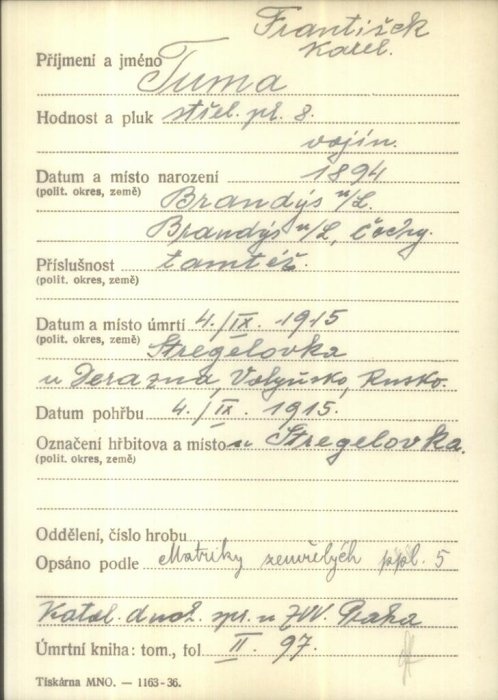 František
Karel.
Příjmení a jméno Tuma
Hodnost a pluk střel. pl. 8.
vojín.
Datum a místo narození 1894
(polit. okres, země) Brandýs n/L.
Brandýs n/L, Čechy.
Příslušnost tamtéž.
(polit. okres, země)
Datum a místo úmrtí 4./IX. 1915
(polit. okres, země) Stregelovka
u Derazna, Volyňsko, Rusko.
Datum pohřbu 4./IX. 1915.
Označení hřbitova a místo u Stregelovka.
(polit. okres, země)
Oddělení, číslo hrobu
Opsáno podle Matriky zemřelých ppl. 5
Katol. duch. spr. u ZVV. Praha
Úmrtní kniha: tom., fol II. 97.
Tiskárna MNO. — 1163-36.